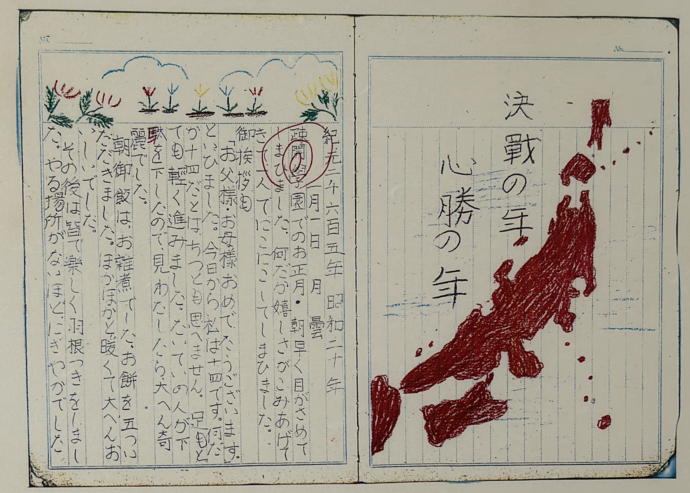 決戰の年
心勝の年
紀元二千六百五年 昭和二十年
一月一日 月 曇
疎開学園でのお正月。朝早く目がさめて
しまひました。何だか嬉しさがこみあげて
きて一人でにこにこしてしまひました。
御挨拶も
「お父様・お母様おめでたうございます。」
といひました。今日から私は十四です。何だ
か十四だとはちつとも思へません。足もと
ても軽く進みました。たいていの人が下
駄を下したので見わたしたら大へん奇
麗でした。
朝御飯は、お雑煮でした。お餅を五ついた
だきました。ほかほかと暖くて大へんお
いしいでした。
その後は皆で楽しく羽根つきをしまし
た。やる場所がないほどにぎやかでした。